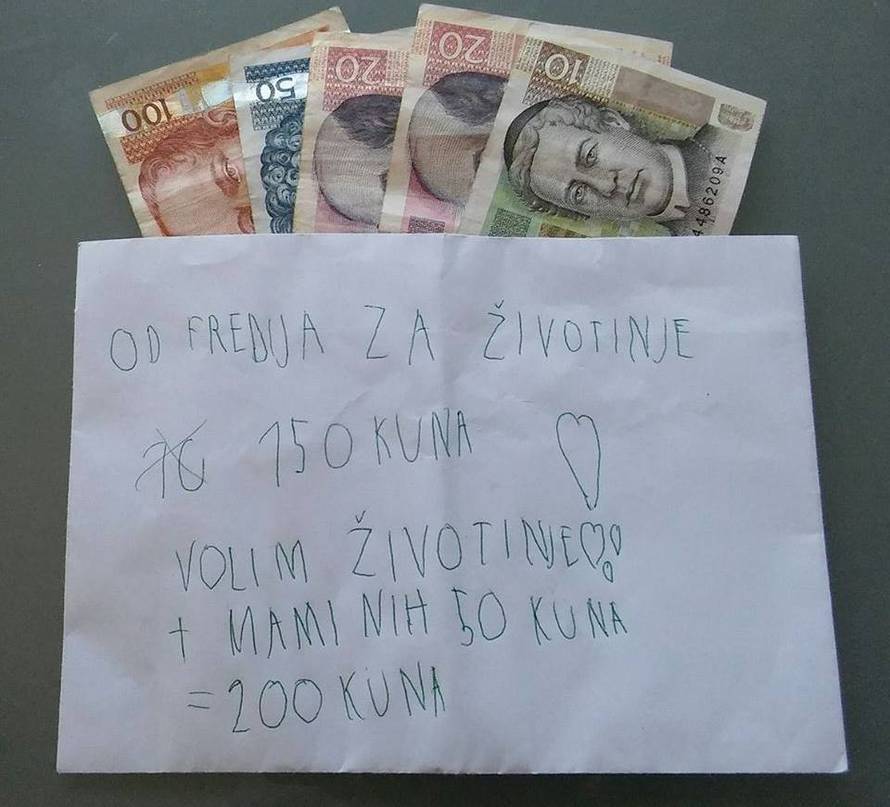 100
50
20
20
10
4486209A
OD FREDIJA ZA ŽIVOTINJE
150 KUNA
VOLIM ŽIVOTINJE
+ MAMINIH 50 KUNA
= 200 KUNA